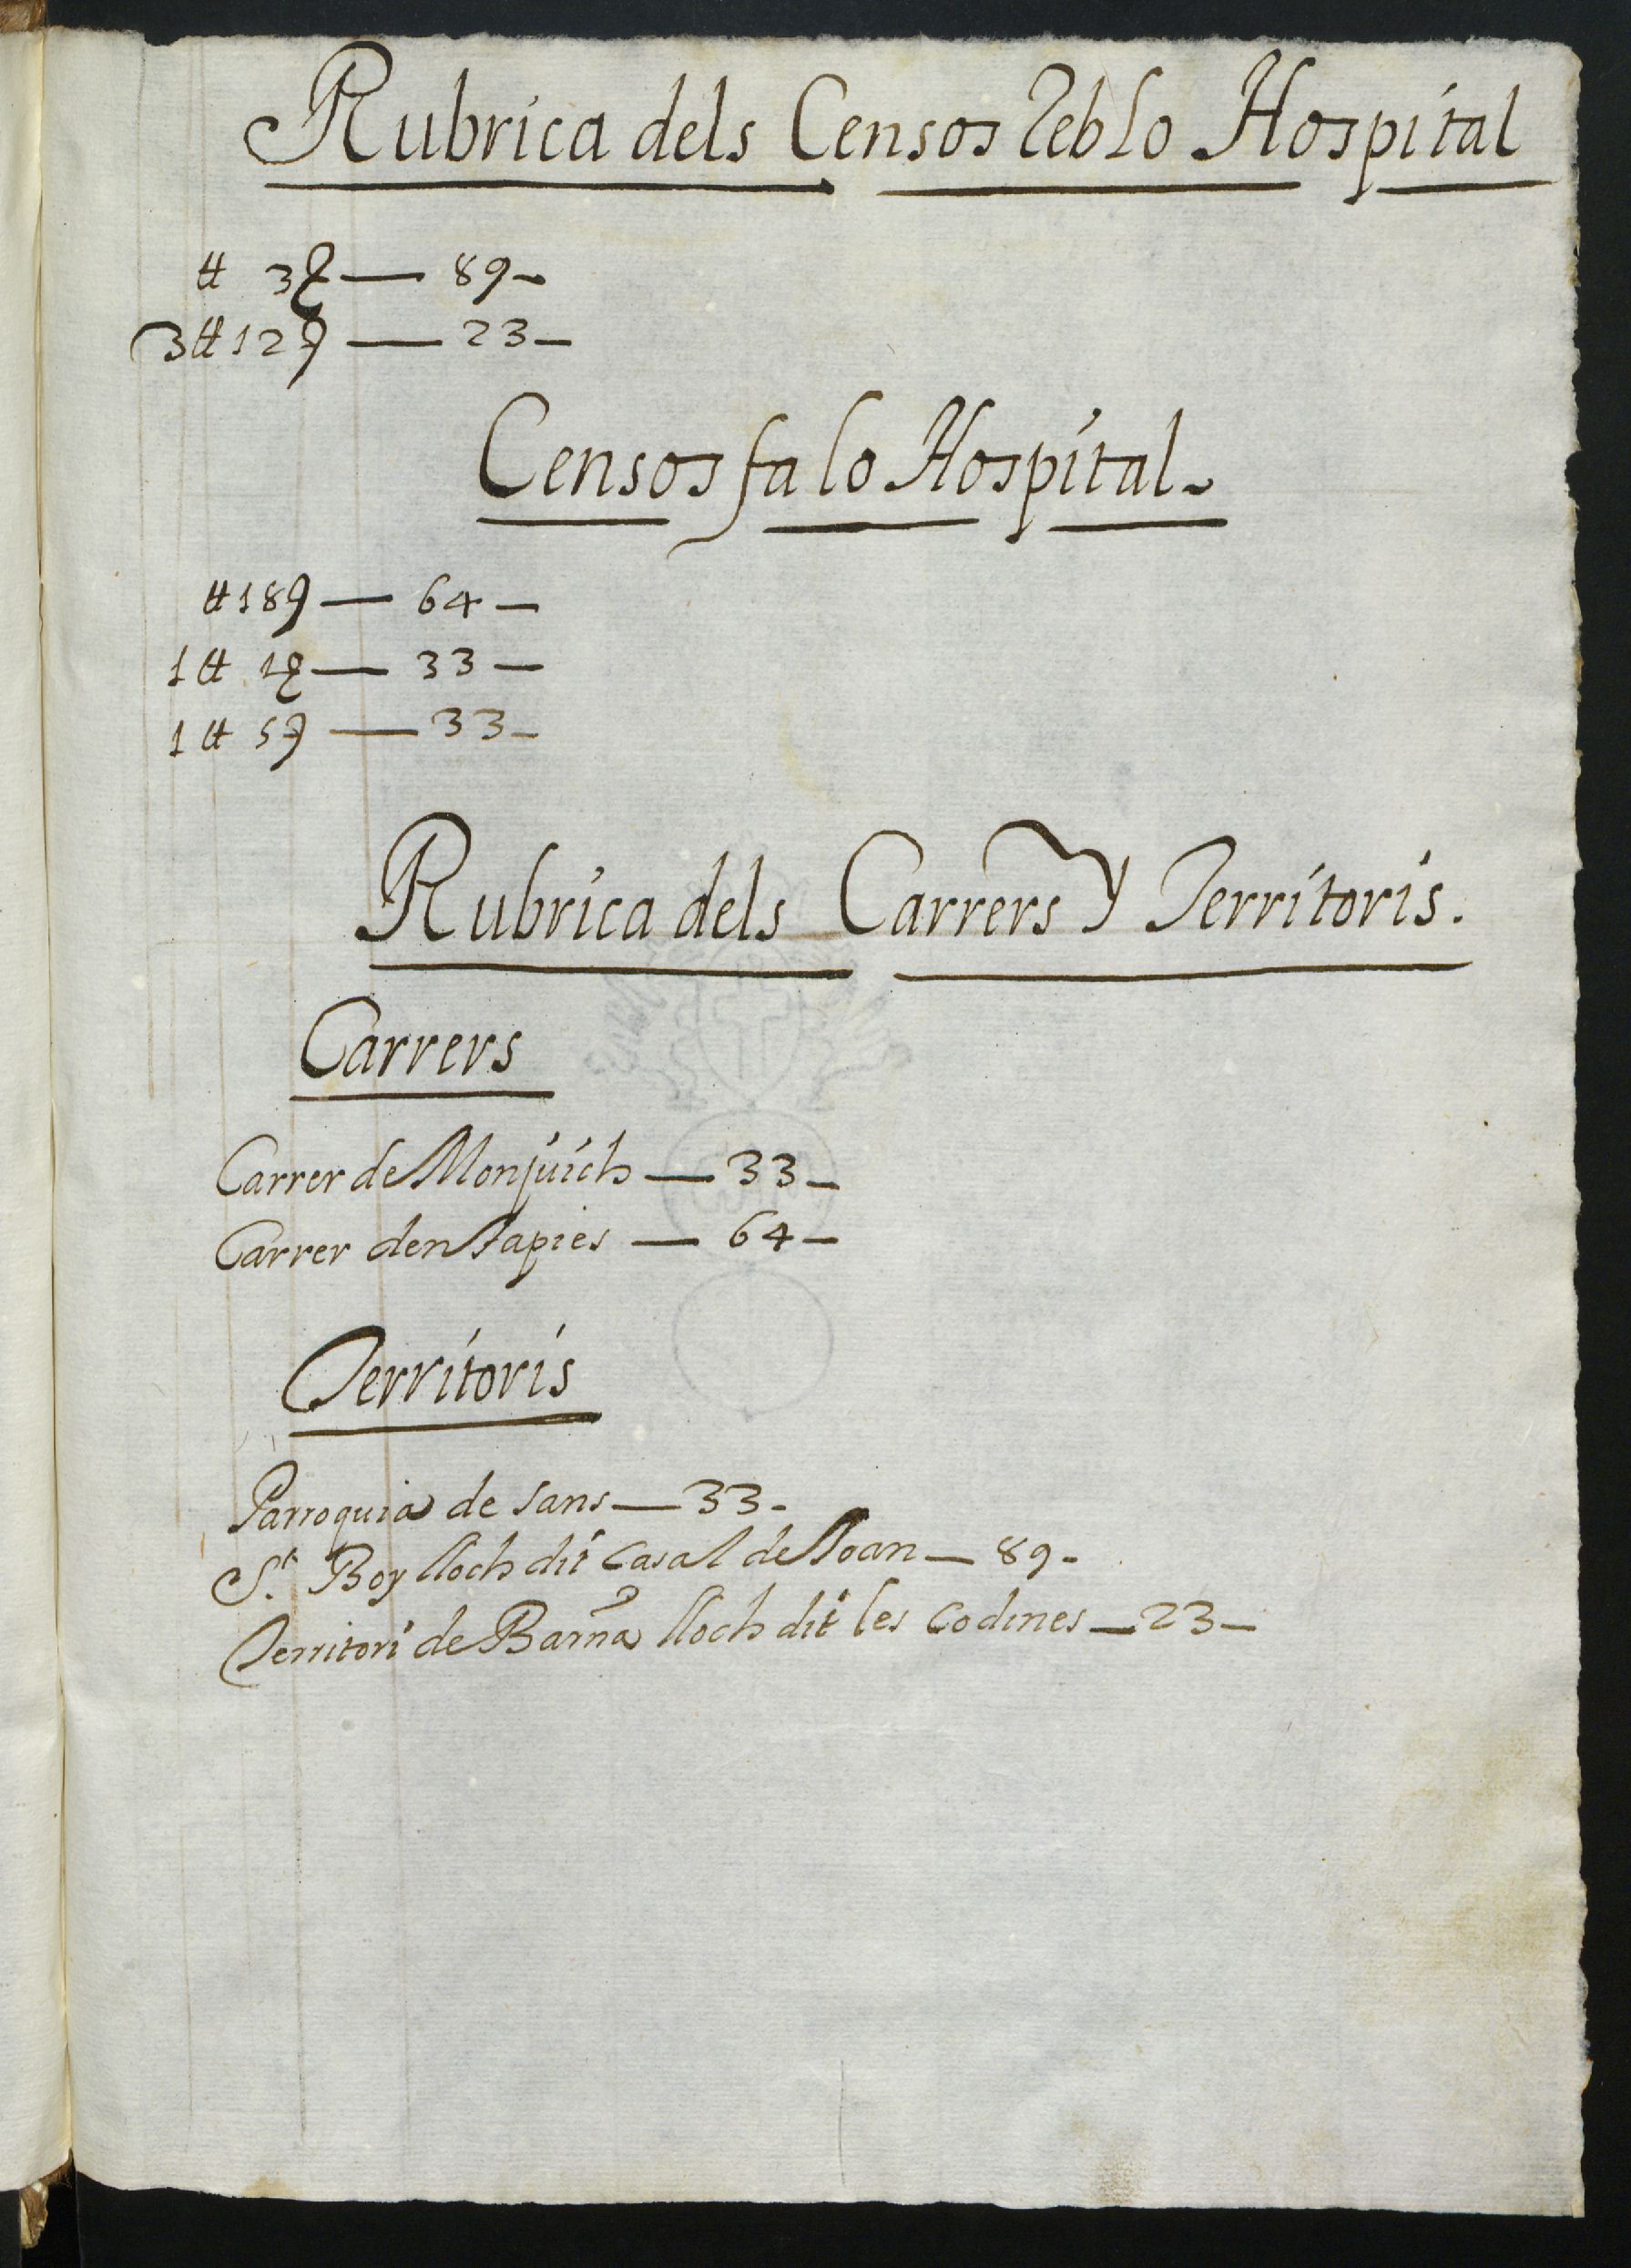 Rubrica dels Censos Reb lo Hospital
₶ 3ȷ — 89 –
3₶ 12ȷ — 23 –
Censos fa lo Hospital.
₶ 18ȷ — 64 –
1₶ 1ȷ — 33 –
1₶ 5ȷ — 33 –
Rubrica dels Carrers y Territoris.
Carrers
Carrer de Monjuich — 33 –
Carrer den Tapies — 64 –
Territoris
Parroquia de Sans — 33 -
St. Boy lloch dit Casal de Joan — 89 -
Territori de Barna lloch dit les Codines — 23 –